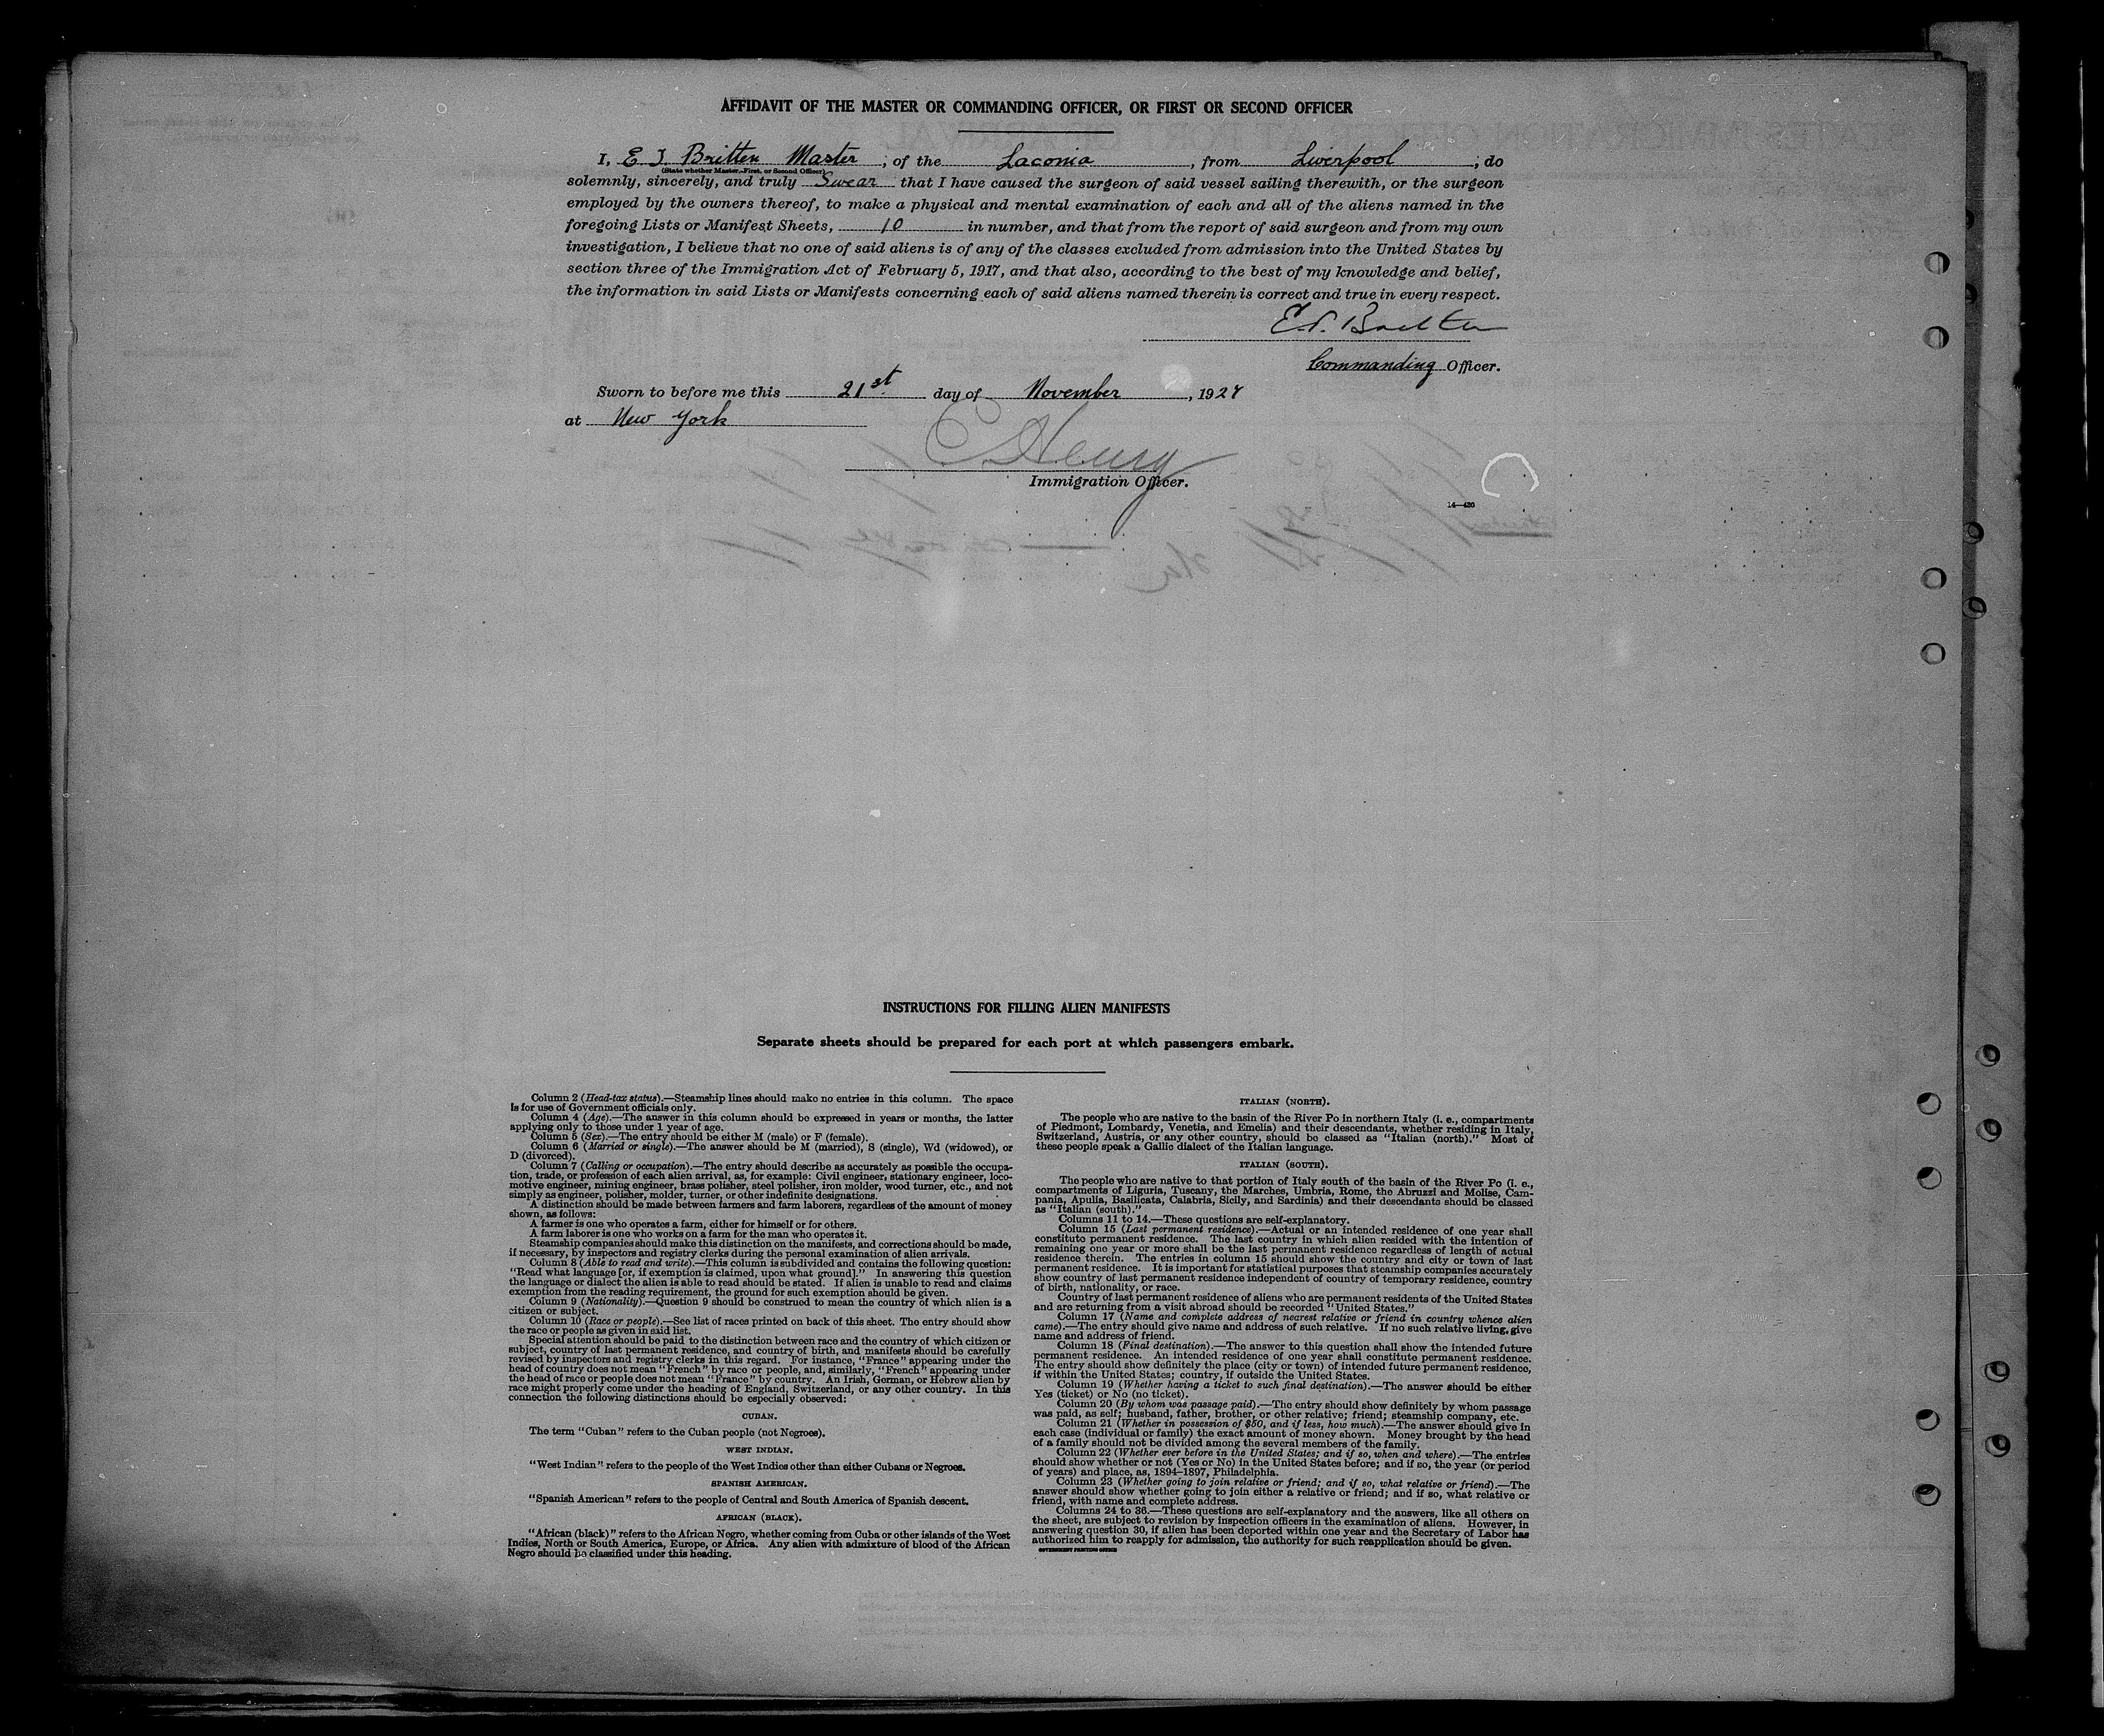 AFFIDAVIT OF THE MASTER OR COMMANDING OFFICER, OR FIRST OR SECOND OFFICER
I, E. T. Britten Master, of the Laconia, from Liverpool; do
(State whether Master, First, or Second Officer)
solemnly, sincerely, and truly Swear that I have caused the surgeon of said vessel sailing therewith, or the surgeon
employed by the owners thereof, to make a physical and mental examination of each and all of the aliens named in the
foregoing Lists or Manifest Sheets, 10 in number, and that from the report of said surgeon and from my own
investigation, I believe that no one of said aliens is of any of the classes excluded from admission into the United States by
section three of the Immigration Act of February 5, 1917, and that also, according to the best of my knowledge and belief,
the information in said Lists or Manifests concerning each of said aliens named therein is correct and true in every respect.
E.T. Britten
Commanding Officer.
Sworn to before me this 21st day of November, 1927
at New York
C Henry
Immigration Officer.
14—430
INSTRUCTIONS FOR FILLING ALIEN MANIFESTS
Separate sheets should be prepared for each port at which passengers embark.
Column 2 (Head-tax status).—Steamship lines should make no entries in this column. The space
is for use of Government officials only.
Column 4 (Age).—The answer in this column should be expressed in years or months, the latter
applying only to those under 1 year of age.
Column 5 (Sex).—The entry should be either M (male) or F (female).
Column 6 (Married or single).—The answer should be M (married), S (single), Wd (widowed), or
D (divorced).
Column 7 (Calling or occupation).—The entry should describe as accurately as possible the occupa-
tion, trade, or profession of each alien arrival, as, for example: Civil engineer, stationary engineer, loco-
motive engineer, mining engineer, brass polisher, steel polisher, iron molder, wood turner, etc., and not
simply as engineer, polisher, molder, turner, or other indefinite designations.
A distinction should be made between farmers and farm laborers, regardless of the amount of money
shown, as follows:
A farmer is one who operates a farm, either for himself or for others.
A farm laborer is one who works on a farm for the man who operates it.
Steamship companies should make this distinction on the manifests, and corrections should be made,
if necessary, by inspectors and registry clerks during the personal examination of alien arrivals.
Column 8 (Able to read and write).—This column is subdivided and contains the following question:
"Read what language [or, if exemption is claimed, upon what ground]." In answering this question
the language or dialect the alien is able to read should be stated. If alien is unable to read and claims
exemption from the reading requirement, the ground for such exemption should be given.
Column 9 (Nationality).—Question 9 should be construed to mean the country of which alien is a
citizen or subject.
Column 10 (Race or people).—See list of races printed on back of this sheet. The entry should show
the race or people as given in said list.
Special attention should be paid to the distinction between race and the country of which citizen or
subject, country of last permanent residence, and country of birth, and manifests should be carefully
revised by inspectors and registry clerks in this regard. For instance, "France" appearing under the
head of country does not mean "French" by race or people, and, similarly, "French" appearing under
the head of race or people does not mean "France" by country. An Irish, German, or Hebrew alien by
race might properly come under the heading of England, Switzerland, or any other country. In this
connection the following distinctions should be especially observed:
CUBAN.
The term "Cuban" refers to the Cuban people (not Negroes).
WEST INDIAN.
"West Indian" refers to the people of the West Indies other than either Cubans or Negroes.
SPANISH AMERICAN.
"Spanish American" refers to the people of Central and South America of Spanish descent.
AFRICAN (BLACK).
"African (black)" refers to the African Negro, whether coming from Cuba or other islands of the West
Indies, North or South America, Europe, or Africa. Any alien with admixture of blood of the African
Negro should be classified under this heading.
ITALIAN (NORTH).
The people who are native to the basin of the River Po in northern Italy (i. e., compartments
of Piedmont, Lombardy, Venetia, and Emelia) and their descendants, whether residing in Italy,
Switzerland, Austria, or any other country, should be classed as "Italian (north)." Most of
these people speak a Gallic dialect of the Italian language.
ITALIAN (SOUTH).
The people who are native to that portion of Italy south of the basin of the River Po (i. e.,
compartments of Liguria, Tuscany, the Marches, Umbria, Rome, the Abruzzi and Molise, Cam-
pania, Apulia, Basilicata, Calabria, Sicily, and Sardinia) and their descendants should be classed
as "Italian (south)."
Columns 11 to 14.—These questions are self-explanatory.
Column 15 (Last permanent residence).—Actual or an intended residence of one year shall
constitute permanent residence. The last country in which alien resided with the intention of
remaining one year or more shall be the last permanent residence regardless of length of actual
residence therein. The entries in column 15 should show the country and city or town of last
permanent residence. It is important for statistical purposes that steamship companies accurately
show country of last permanent residence independent of country of temporary residence, country
of birth, nationality, or race.
Country of last permanent residence of aliens who are permanent residents of the United States
and are returning from a visit abroad should be recorded "United States."
Column 17 (Name and complete address of nearest relative or friend in country whence alien
came).—The entry should give name and address of such relative. If no such relative living, give
name and address of friend.
Column 18 (Final destination).—The answer to this question shall show the intended future
permanent residence. An intended residence of one year shall constitute permanent residence.
The entry should show definitely the place (city or town) of intended future permanent residence,
if within the United States; country, if outside the United States.
Column 19 (Whether having a ticket to such final destination).—The answer should be either
Yes (ticket) or No (no ticket).
Column 20 (By whom was passage paid).—The entry should show definitely by whom passage
was paid, as self; husband, father, brother, or other relative; friend; steamship company, etc.
Column 21 (Whether in possession of $50, and if less, how much).—The answer should give in
each case (individual or family) the exact amount of money shown. Money brought by the head
of a family should not be divided among the several members of the family.
Column 22 (Whether ever before in the United States; and if so, when and where).—The entries
should show whether or not (Yes or No) in the United States before; and if so, the year (or period
of years) and place, as, 1894–1897, Philadelphia.
Column 23 (Whether going to join relative or friend; and if so, what relative or friend).—The
answer should show whether going to join either a relative or friend; and if so, what relative or
friend, with name and complete address.
Columns 24 to 36.—These questions are self-explanatory and the answers, like all others on
the sheet, are subject to revision by inspection officers in the examination of aliens. However, in
answering question 30, if alien has been deported within one year and the Secretary of Labor has
authorized him to reapply for admission, the authority for such reapplication should be given.
GOVERNMENT PRINTING OFFICE